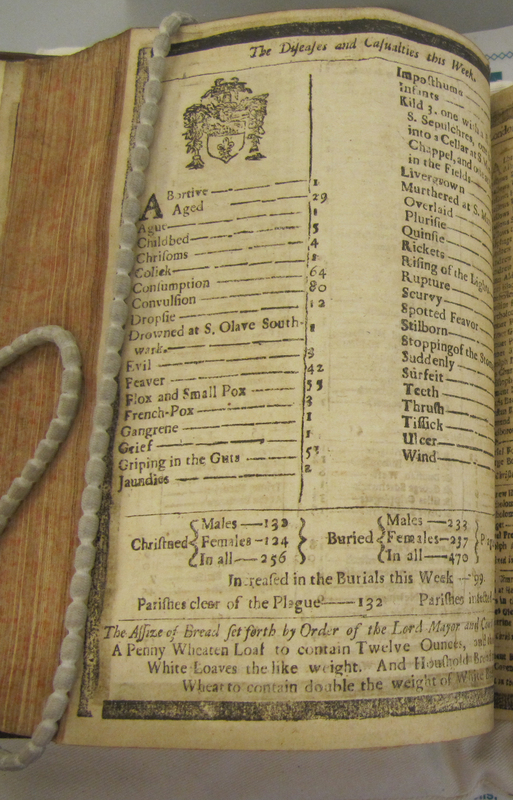 The Diſeaſes and Caſualties this Week.
ABortive 1
Aged 29
Ague 1
Childbed 5
Chriſoms 4
Colick
Conſumption 64
Convulſion 80
Dropſie 12
Drowned at S. Olave South- 1
wark.
Evil 3
Feaver 42
Flox and Small Pox 55
French-Pox 3
Gangrene 1
Grief 1
Griping in the Guts
Jaundies 2
Impoſthume
Infants
Kild 3. one with a
S. Sepulchres, one
into a Cellar at S.
Chappel, and
in the Fields
Livergrown
Murthered at S.
Overlaid
Pluriſie
Quinſie
Rickets
Riſing of the Lights
Rupture
Scurvy
Spotted Feavor
Stilborn
Stopping of the
Suddenly
Surfeit
Teeth
Thruſh
Tiſſick
Ulcer
Wind
Chriſtned Males 132 Females 124 In all 256
Buried Males 233 Females 237 In all 470
Increaſed in the Burials this Week 99
Pariſhes cleer of the Plague 132 Pariſhes infected
The Aſſize of Bread ſet forth by Order of the Lord Mayor and
A Penny Wheaten Loaf to contain Twelve Ounces, and
White Loaves the like weight. And Houſhold
Wheat to contain double the weight of White